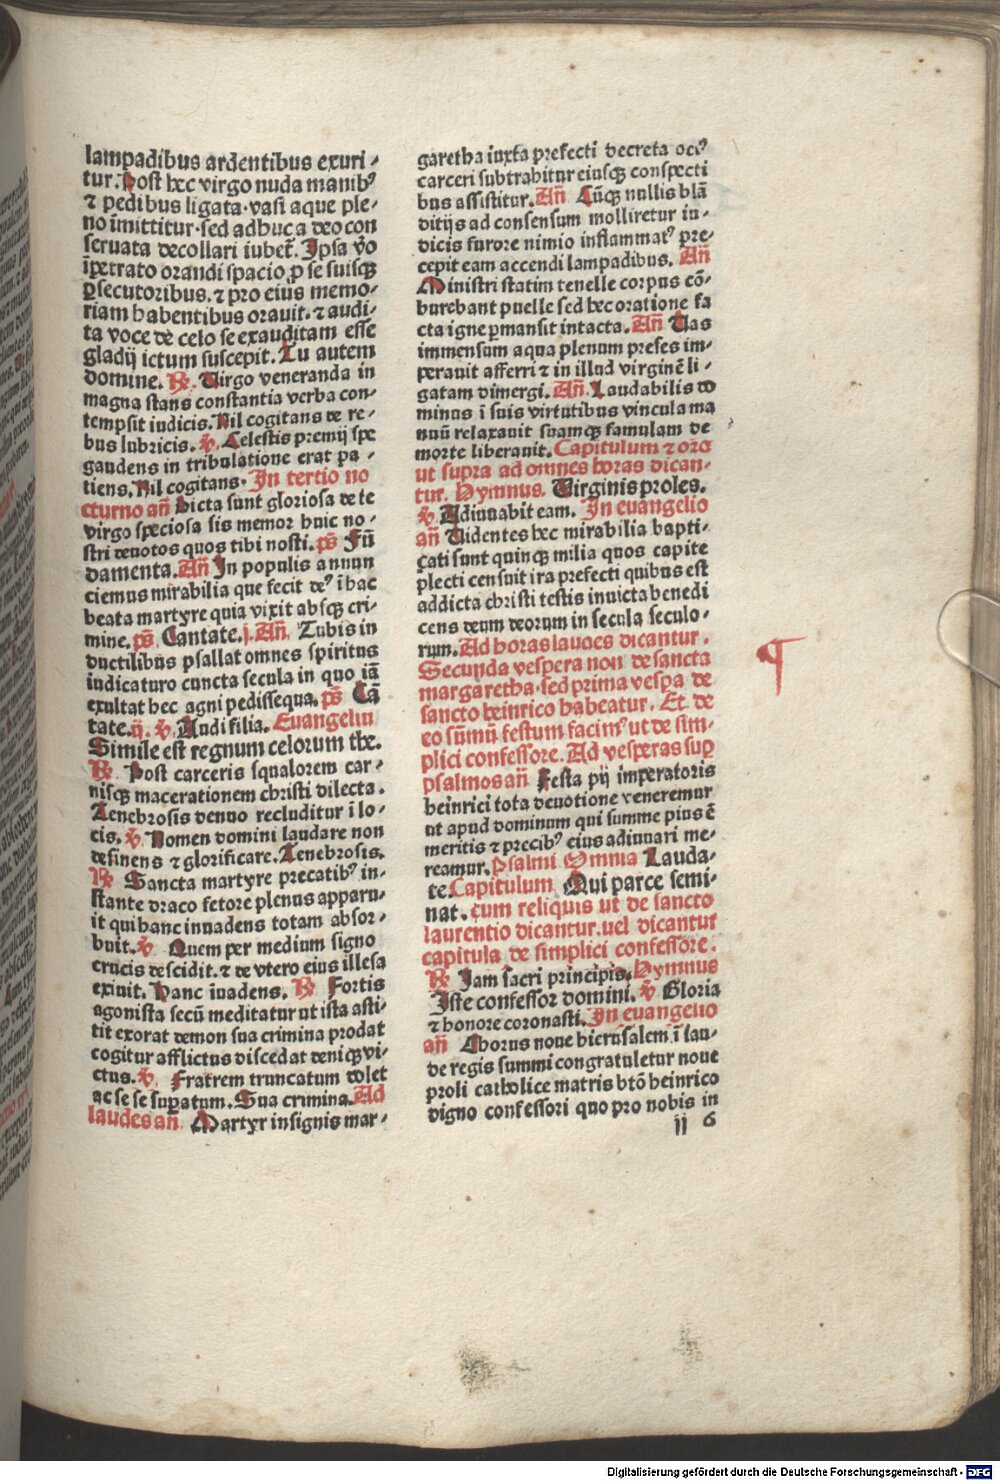 lampadibus ardentibus exuri⸗
tur. Post hec virgo nuda manibꝰ
⁊ pedibus ligata·vasi aque ple⸗
no īmittitur·sed adhuc a deo con
seruata decollari iubet̄. Ipsa v̊o
īpetrato orandi spacio ꝓ se suisqꝫ
ꝑsecutoribus.⁊ pro eius memo⸗
riam habentibus orauit·⁊ audi⸗
ta voce de celo se exauditam esse
gladij ictum suscepit. Tu autem
domine. ℟. Virgo veneranda in
magna stans constantia verba con⸗
tempsit iudicis. Nil cogitans de re⸗
bus lubricis. ℣. Celestis premij spe
gaudens in tribulatione erat pa⸗
tiens. Nil cogitans. In tertio no
cturno an̄ Dicta sunt gloriosa de te
virgo speciosa sis memor huic no⸗
stri deuotos quos tibi nosti. ps̄ Fū
damenta. An̄ In populis annun
ciemus mirabilia que fecit deꝰ ī hac
beata martyre quia vixit absqꝫ cri⸗
mine. ps̄ Cantate.j. An̄. Tubis in
ductilibus psallat omnes spiritus
iudicaturo cuncta secula in quo iā
exultat hec agni pedissequa. ps̄ Cā
tate.ij. ℣. Audi filia. Euangeliū
Simile est regnum celorum the.
℟. Post carceris squalorem car⸗
nisqꝫ macerationem christi dilecta.
Tenebrosis denuo recluditur ī lo⸗
cis. ℣. Nomen domini laudare non
desinens ⁊ glorificare. Tenebrosis.
℟ Sancta martyre precatibꝰ in⸗
stante draco fetore plenus apparu⸗
it qui hanc inuadens totam absor⸗
buit. ℣. Quem per medium signo
crucis descidit.⁊ de vtero eius illesa
exiuit. Hanc īuadens. ℟ Fortis
agonista secū meditatur ut ista asti⸗
tit exorat demon sua crimina prodat
cogitur afflictus discedat deniqꝫ vi⸗
ctus. ℣. Fratrem truncatum dolet
ac se se suꝑatum. Sua crimina. Ad
laudes an̄. Martyr insignis mar⸗
garetha iuxta prefecti decreta ociꝰ
carceri subtrahitur eiusqꝫ conspecti
bus assistitur. An̄ Cūqꝫ nullis blā
ditijs ad consensum molliretur iu⸗
dicis furore nimio inflammatꝰ pre⸗
cepit eam accendi lampadibus. An̄
Ministri statim tenelle corpus cō⸗
burebant puelle sed hec oratione fa
cta igne ꝑmansit intacta. An̄ Vas
immensum aqua plenum preses im⸗
perauit afferri ⁊ in illud virginē li⸗
gatam dimergi. An̄. Laudabilis do
minus ī suis virtutibus vincula ma
nuū relaxauit suamqꝫ famulam de
morte liberauit. Capitulum ⁊ oro
ut supra ad omnes horas dican⸗
tur. Hymnus. Virginis proles.
℣ Adiuuabit eam. In euangelio
an̄ Videntes hec mirabilia bapti⸗
çati sunt quinqꝫ milia quos capite
plecti censuit ira prefecti quibus est
addicta christi testis inuicta benedi
cens deum deorum in secula seculo⸗
rum. Ad horas laudes dicantur.
Secunda vespera non de sancta
margaretha·sed prima vesꝑa de
sancto heinrico habeatur. Et de
eo sūmū festum facimꝰ ut de sim⸗
plici confessore. Ad vesperas suꝑ
psalmos an̄ Festa pij imperatoris
heinrici tota deuotione veneremur
ut apud dominum qui summe pius ē
meritis ⁊ precibꝰ eius adiuuari me⸗
reamur. Psalmi Omnia Lauda⸗
te. Capitulum Qui parce semi⸗
nat. cum reliquis ut de sancto
laurentio dicantur.uel dicantur
capitula de simplici confessore.
℟ Iam sacri principis. Hymnus
Iste confessor domini. ℣ Gloria
⁊ honore coronasti. In euangelio
an̄ Chorus noue hierusalem ī lau⸗
de regis summi congratuletur noue
proli catholice matris btō heinrico
digno confessori quo pro nobis in
ij 6
Digitalisierung gefördert durch die Deutsche Forschungsgemeinschaft - DFG